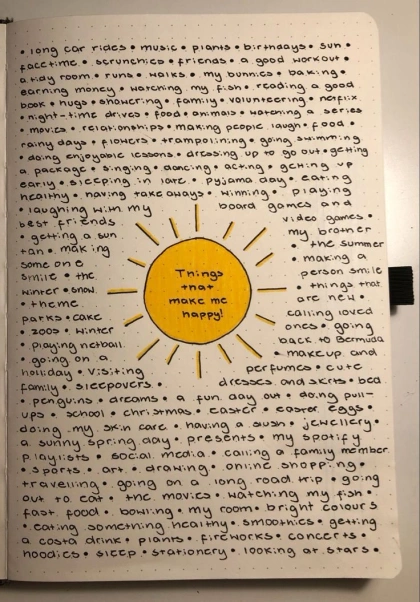 • long car rides • music • plants • birthdays • sun •
facetime • scrunchies • friends • a good workout •
a tidy room • runs • walks • my bunnies • baking •
earning money • watching my fish • reading a good
book • hugs • showering • family • volunteering • netflix
• night-time drives • food • animals • watching a series
• movies • relationships • making people laugh • food •
rainy days • flowers • trampolining • going swimming
• doing enjoyable lessons • dressing up to go out • getting
a package • singing • dancing • acting • getting up
early • sleeping in late • pyjama day • eating
healthy • having takeaways • winning • playing
• laughing with my board games and
best friends video games •
• getting a sun my brother
tan • making • the summer
someone • making a
smile • the person smile
winter • snow • things that
• theme are new •
parks • cake calling loved
• zoos • winter ones • going
• playing netball back to Bermuda
• going on a • makeup and
holiday • visiting perfumes • cute
family • sleepovers • dresses and skirts • bed
Things
that
make me
happy!
• penguins • dreams • a fun day out • doing pull-
ups • school • christmas • easter • easter eggs •
doing my skin care • having a sush • jewellery •
a sunny spring day • presents • my spotify
playlists • social media • calling a family member
• sports • art • drawing • online shopping •
travelling • going on a long road trip • going
out to eat • the movies • watching my fish •
fast food • bowling • my room • bright colours
• eating something healthy • smoothies • getting
a costa drink • plants • fireworks • concerts •
hoodies • sleep • stationery • looking at stars •